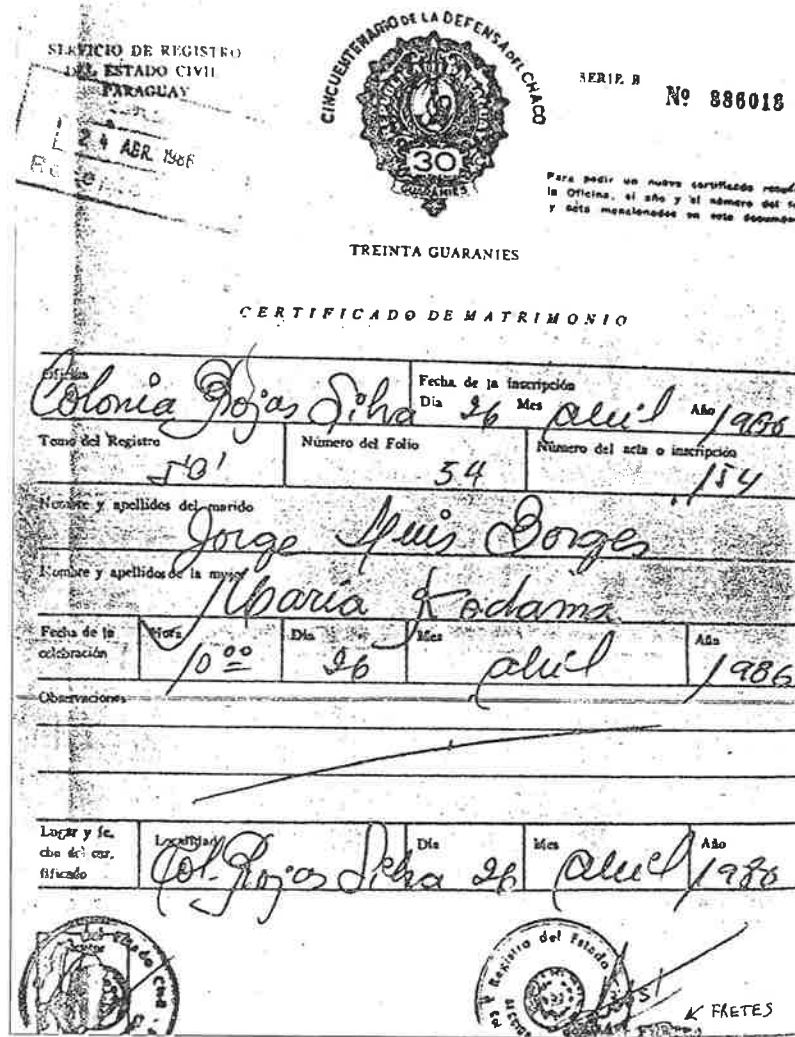 SERVICIO DE REGISTRO
DEL ESTADO CIVIL
PARAGUAY
24 ABR. 1986
CINCUENTENARIO DE LA DEFENSA DEL CHACO
30
GUARANIES
SERIE B
Nº 886018
Para pedir un nuevo certificado
la Oficina, el año y el número del
y acta mencionados en este
TREINTA GUARANIES
CERTIFICADO DE MATRIMONIO
Oficina
Colonia Rojas Silva
Fecha de la inscripción
Dia 26 Mes abril Año 1986
Tomo del Registro
Número del Folio
54
Número del acta o inscripción
154
Nombre y apellidos del marido
Jorge Luis Borges
Nombre y apellidos de la mujer
María Kodama
Fecha de la celebración
Hora
10 00
Dia
26
Mes
abril
Año
1986
Observaciones
Lugar y fe-
cha del cer-
tificado
Localidad
Col. Rojas Silva
Dia
26
Mes
abril
Año
1986
del Estado Civil
Registro del Estado
FRETES